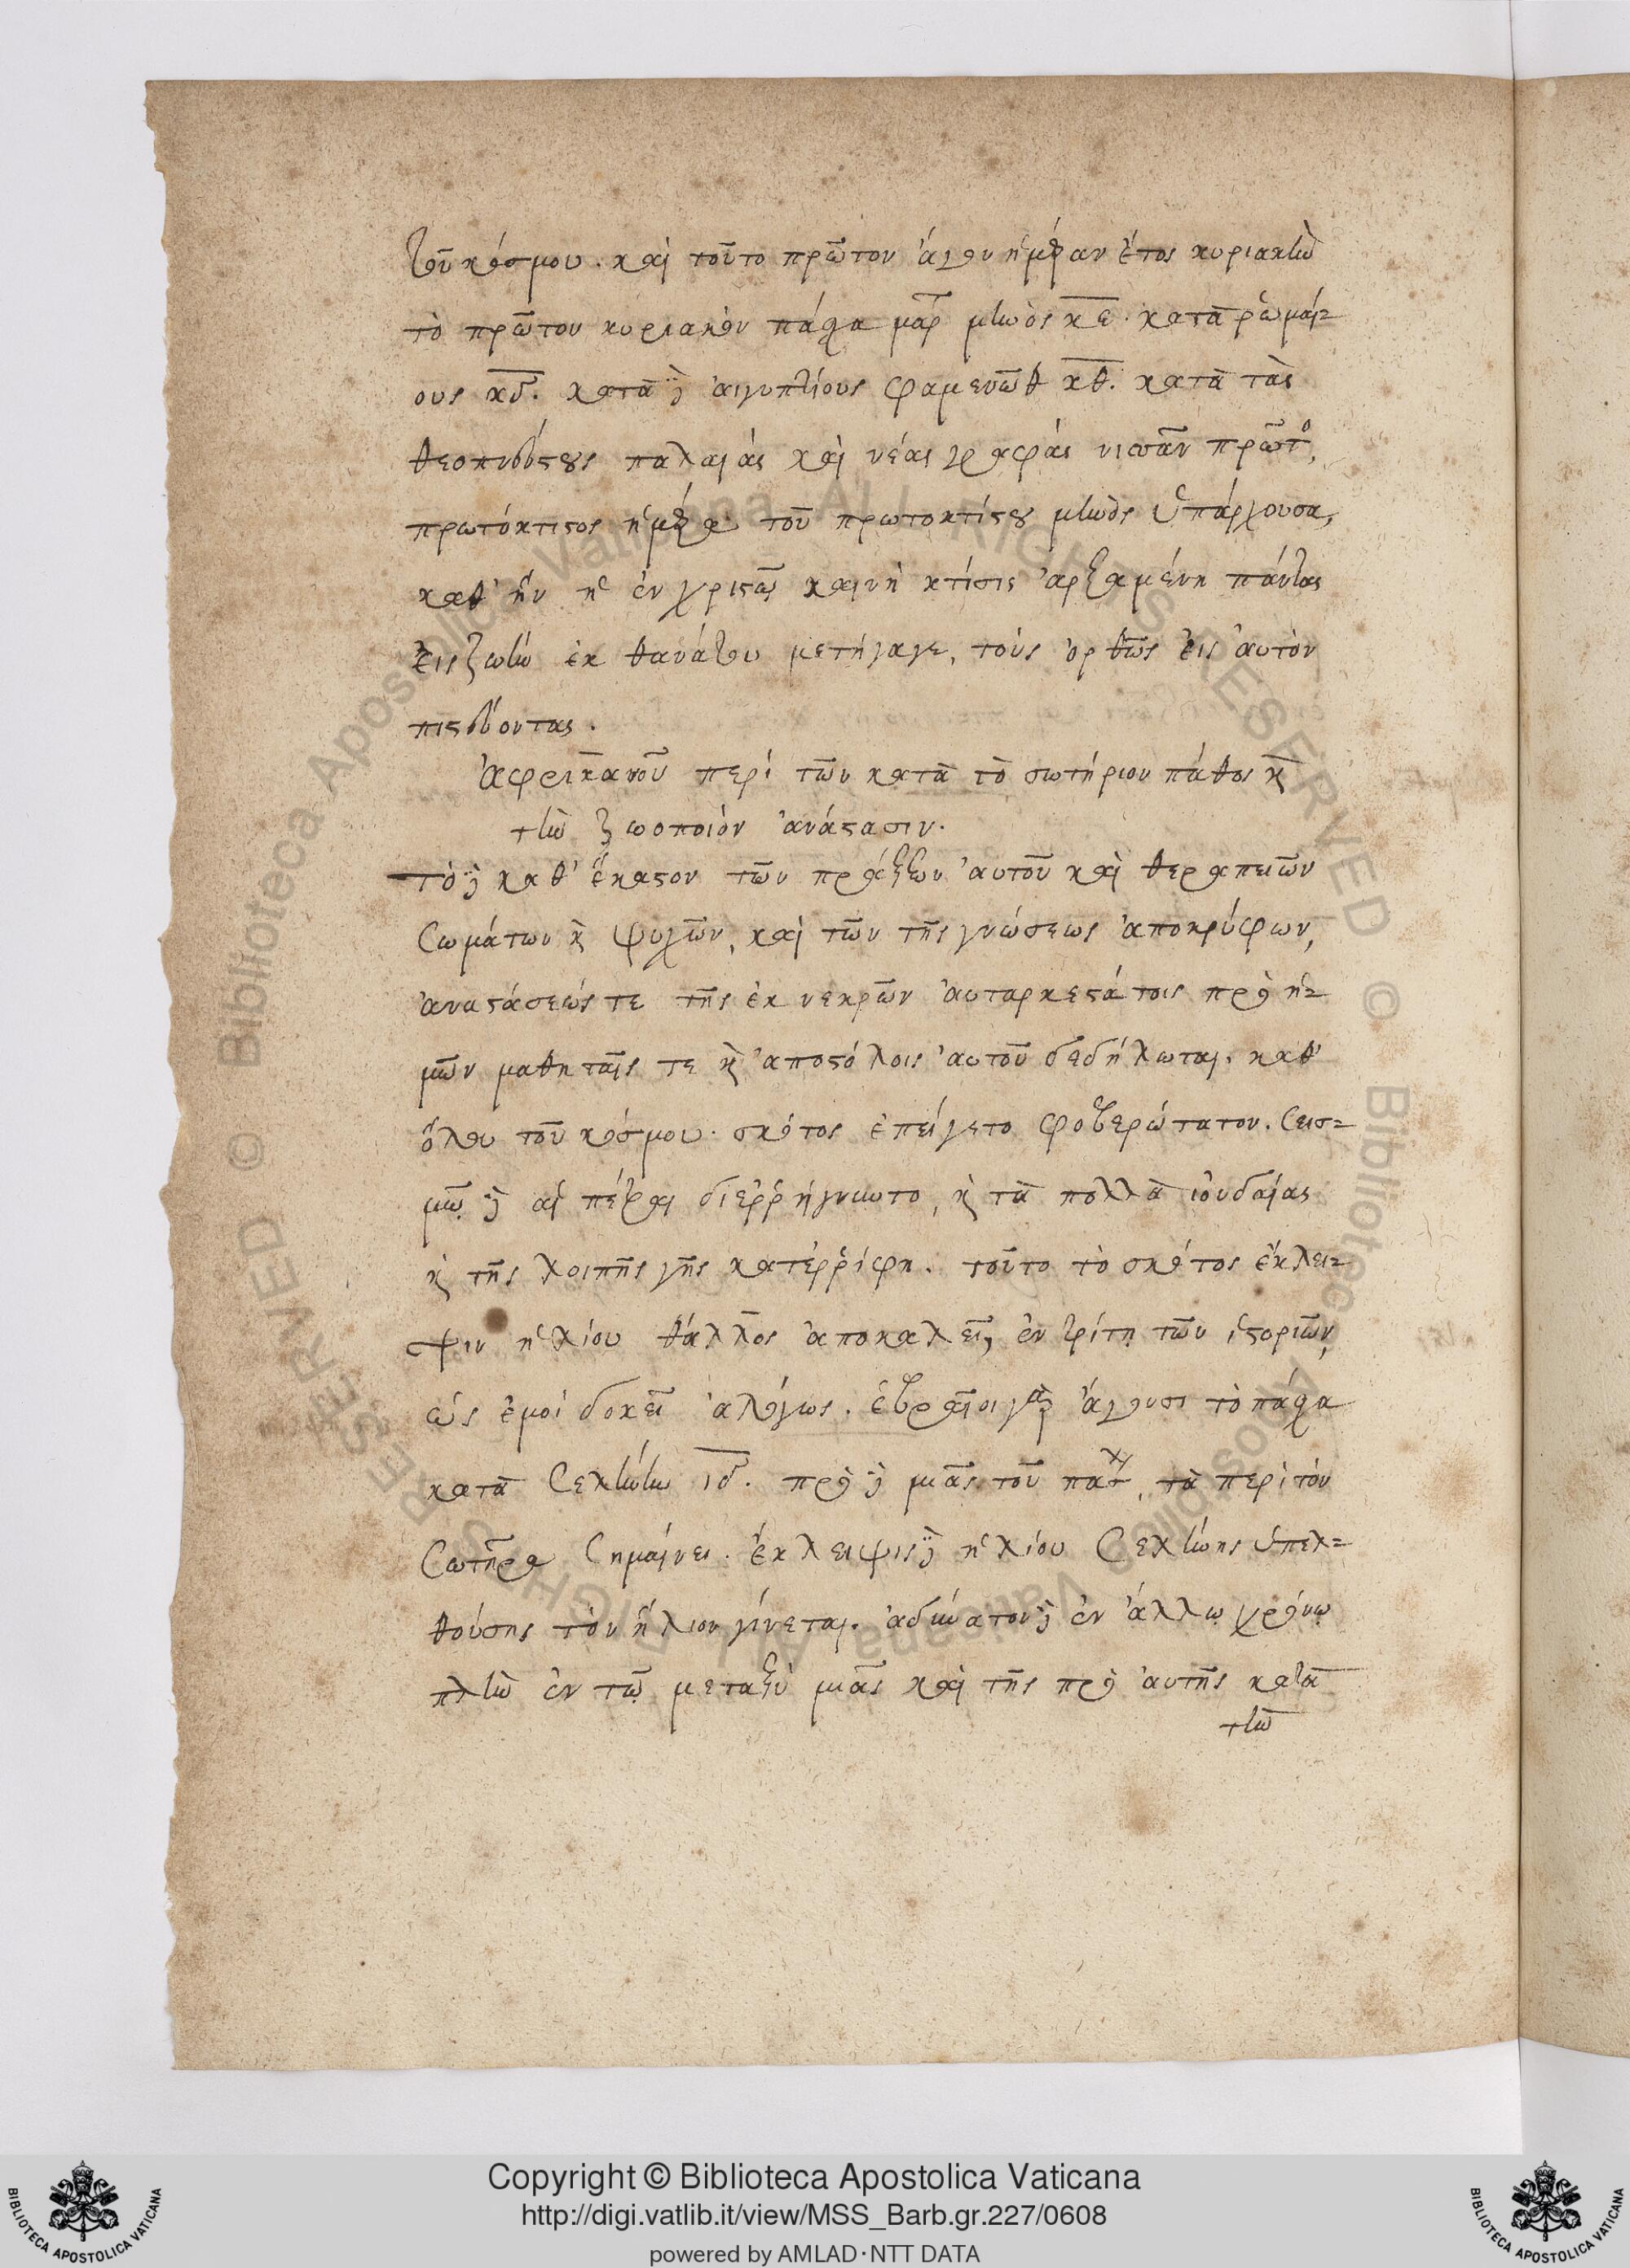 τοῦ κόσμου. καὶ τοῦτο πρῶτον ἄγον ἡμέραν ἔτος κυριακὴν
τὸ πρῶτον κυριακὸν πάσχα μαρ μηνὸς κε. κατὰ ῥωμαί=
ους κδ. κατὰ δὲ αἰγυπτίους φαμενὼθ κθ. κατὰ τὰς
θεοπνεύστους παλαιάς καὶ νέας γραφάς νισὰν πρώτ,
πρωτόκτιστος ἡμέρα τοῦ πρωτοκτίστου μηνὸς ὑπάρχουσα,
καθ' ἣν ἡ ἐν χριστῷ καινὴ κτίσις ἀρξαμένη πάντας
εἰς ζωὴν ἐκ θανάτου μετήγαγε, τοὺς ὀρθῶς εἰς αὐτὸν
πιστεύοντας.
ἀφρικανοῦ περὶ τῶν κατὰ τὸ σωτήριον πάθος καὶ
τὴν ζωοποιὸν ἀνάστασιν.
τὸ δὲ καθ' ἕκαστον τῶν πράξεων αὐτοῦ καὶ θεραπειῶν
σωμάτων καὶ ψυχῶν, καὶ τῶν τῆς γνώσεως ἀποκρύφων,
ἀναστάσεώς τε τῆς ἐκ νεκρῶν αὐταρκεστάτοις πρὸ ἡ=
μῶν μαθηταῖς τε καὶ ἀποστόλοις αὐτοῦ δεδήλωται. καθ'
ὅλου τοῦ κόσμου. σκότος ἐπείγετο φοβερώτατον. σεισ=
μῷ δὲ αἱ πέτραι διερρήγνυντο, καὶ τὰ πολλὰ ἰουδαίας
καὶ τῆς λοιπῆς γῆς κατερρίφη. τοῦτο τὸ σκότος ἔκλει=
ψιν ἡλίου θάλλος ἀποκαλεῖ, ἐν τρίτῃ τῶν ἱστοριῶν,
ὡς ἐμοὶ δοκεῖ ἀλόγως. ἑβραῖοι γὰρ ἄγουσι τὸ πάσχα
κατὰ σελήνην ιδ. πρὸ δὲ μιᾶς τοῦ πασχ, τὰ περὶ τὸν
σωτῆρα σημαίνει. ἔκλειψις δὲ ἡλίου σελήνης ὑπελ=
θούσης τὸν ἥλιον γίνεται. ἀδύνατον δὲ ἐν ἄλλῳ χρόνῳ
πλὴν ἐν τῷ μεταξὺ μιᾶς καὶ τῆς πρὸ αὐτῆς κατὰ
τὴν
Copyright © Biblioteca Apostolica Vaticana
http://digi.vatlib.it/view/MSS_Barb.gr.227/0608
powered by AMLAD·NTT DATA